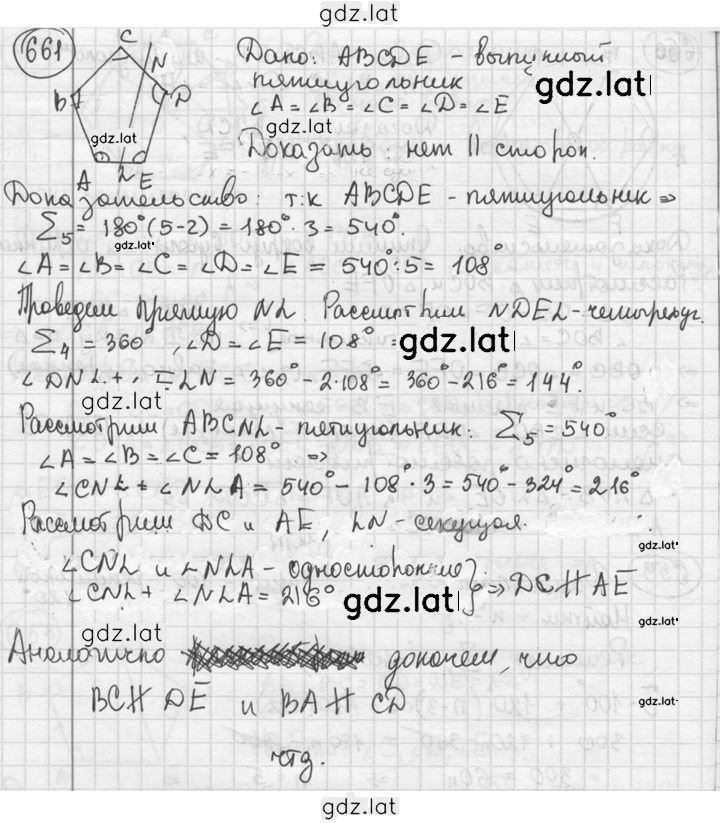 gdz.lat
661
C
N
B
D
gdz.lat
A
L
E
Дано: ABCDE - выпуклый
пятиугольник
gdz.lat
∠A = ∠B = ∠C = ∠D = ∠E
gdz.lat
Доказать: нет || сторон.
Доказательство: т.к ABCDE - пятиугольник ⇒
Σ₅ = 180°(5-2) = 180° · 3 = 540°.
gdz.lat
∠A = ∠B = ∠C = ∠D = ∠E = 540° : 5 = 108°
Проведем прямую NL. Рассмотрим NDEL - четырехуг.
Σ₄ = 360°, ∠D = ∠E = 108°
gdz.lat
∠DNL + ∠ELN = 360° - 2·108° = 360° - 216° = 144°.
gdz.lat
Рассмотрим ABCNL - пятиугольник: Σ₅ = 540°
∠A = ∠B = ∠C = 108° ⇒
∠CNL + ∠NLA = 540° - 108° · 3 = 540° - 324° = 216°
Рассмотрим DC и AE, LN - секущая.
gdz.lat
∠CNL и ∠NLA - односторонние
∠CNL + ∠NLA = 216° } ⇒ DC ∦ AE
gdz.lat
gdz.lat
gdz.lat
Аналогично докажем, что
BC ∦ DE и BA ∦ CD
gdz.lat
чтд.
gdz.lat